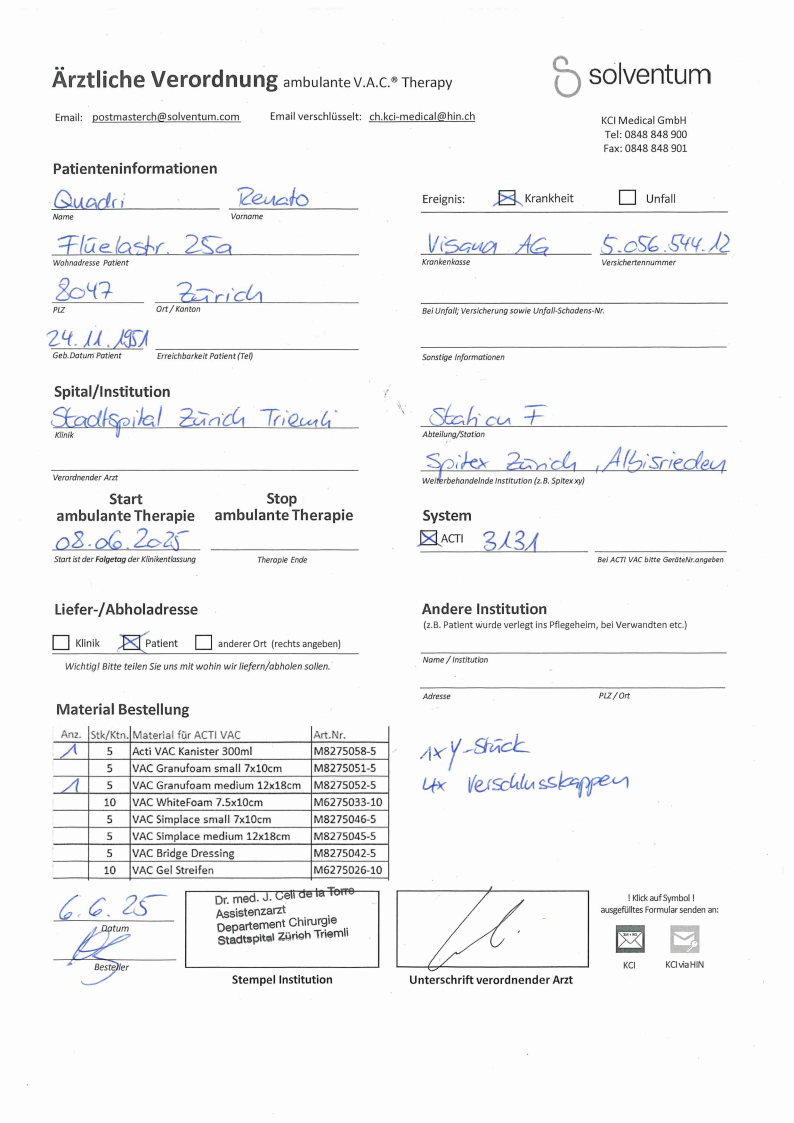 Ärztliche Verordnung ambulante V.A.C.® Therapy
solventum
Email: postmasterch@solventum.com Email verschlüsselt: ch.kci-medical@hin.ch
KCI Medical GmbH
Tel: 0848 848 900
Fax: 0848 848 901
Patienteninformationen
Quadri Renato
Name Vorname
Ereignis: Krankheit Unfall
Flüelastr. 25a
Wohnadresse Patient
Visana AG 5.056.544.12
Krankenkasse Versichertennummer
8047 Zürich
PLZ Ort / Kanton
Bei Unfall; Versicherung sowie Unfall-Schadens-Nr.
24.11.1951
Geb.Datum Patient Erreichbarkeit Patient (Tel)
Sonstige Informationen
Spital/Institution
Stadtspital Zürich Triemli
Klinik
Station F
Abteilung/Station
Verordnender Arzt
Spitex Zürich, Albisrieden
Weiterbehandelnde Institution (z.B. Spitex xy)
Start ambulante Therapie
Stop ambulante Therapie
System
08.06.2025
Start ist der Folgetag der Klinikentlassung Therapie Ende
ACTI 3131
Bei ACTI VAC bitte GeräteNr.angeben
Liefer-/Abholadresse
Klinik Patient anderer Ort (rechts angeben)
Wichtig! Bitte teilen Sie uns mit wohin wir liefern/abholen sollen.
Andere Institution
(z.B. Patient wurde verlegt ins Pflegeheim, bei Verwandten etc.)
Name / Institution
Adresse PLZ / Ort
Material Bestellung
Anz. Stk/Ktn. Material für ACTI VAC Art.Nr.
1 5 Acti VAC Kanister 300ml M8275058-5
5 VAC Granufoam small 7x10cm M8275051-5
1 5 VAC Granufoam medium 12x18cm M8275052-5
10 VAC WhiteFoam 7.5x10cm M6275033-10
5 VAC Simplace small 7x10cm M8275046-5
5 VAC Simplace medium 12x18cm M8275045-5
5 VAC Bridge Dressing M8275042-5
10 VAC Gel Streifen M6275026-10
1x Y-Stück
4x Verschlusskappen
6.6.25
Datum
Besteller
Dr. med. J. Cell de la Torre
Assistenzarzt
Departement Chirurgie
Stadtspital Zürich Triemli
Stempel Institution
Unterschrift verordnender Arzt
! Klick auf Symbol !
ausgefülltes Formular senden an:
KCI KCI via HIN